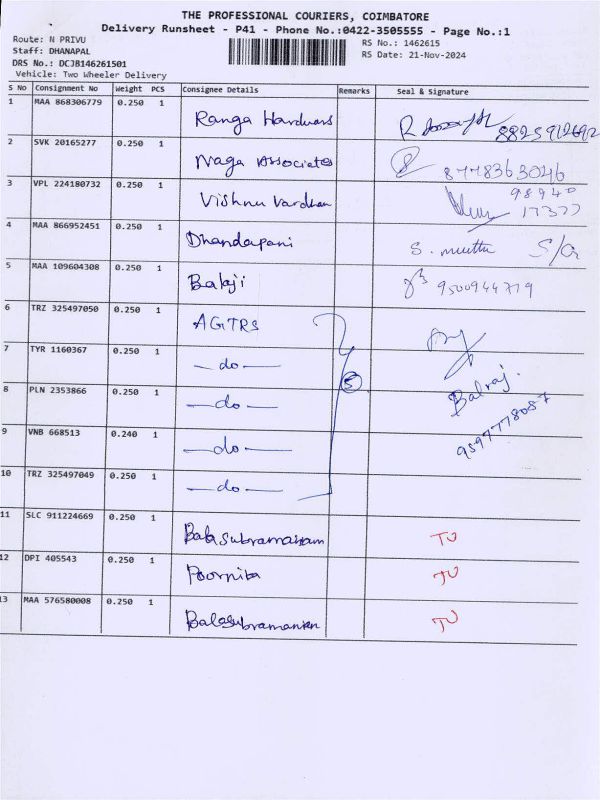 THE PROFESSIONAL COURIERS, COIMBATORE
Delivery Runsheet - P41 - Phone No.:0422-3505555 - Page No.:1
Route: N PRIVU
RS No.: 1462615
Staff: DHANAPAL
RS Date: 21-Nov-2024
DRS No.: DCJB146261501
Vehicle: Two Wheeler Delivery
S No Consignment No Weight PCS Consignee Details Remarks Seal & Signature
1 MAA 868306779 0.250 1 Ranga Hardwars
2 SVK 20165277 0.250 1 Naga Associates 8778363046
3 VPL 224180732 0.250 1 Vishnu Vardhan 98940
17377
4 MAA 866952451 0.250 1 Dhandapani S. muthu S/o
5 MAA 109604308 0.250 1 Balaji 9500944779
6 TRZ 325497050 0.250 1 AGTRS
7 TYR 1160367 0.250 1 -do- 5
8 PLN 2353866 0.250 1 -do- Balraj.
9 VNB 668513 0.240 1 -do- 9597778087
10 TRZ 325497049 0.250 1 -do-
11 SLC 911224669 0.250 1 Balasubramaniam TU
12 DPI 405543 0.250 1 Poornita TU
13 MAA 576580008 0.250 1 Balasubramanian TU